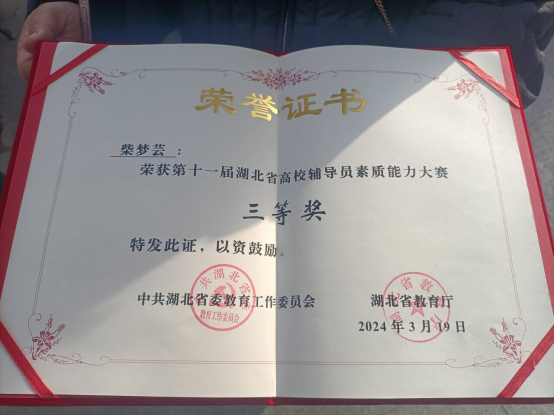 荣誉证书
柴梦芸：
荣获第十一届湖北省高校辅导员素质能力大赛
三等奖
特发此证，以资鼓励。
中共湖北省委教育工作委员会
湖北省教育厅
2024年3月19日
教育工作委员会